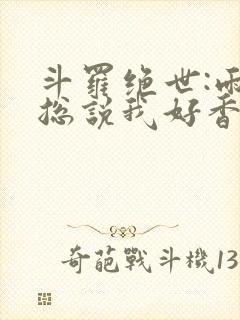 斗羅绝世:雨
总說我好香
奇葩戰斗機13